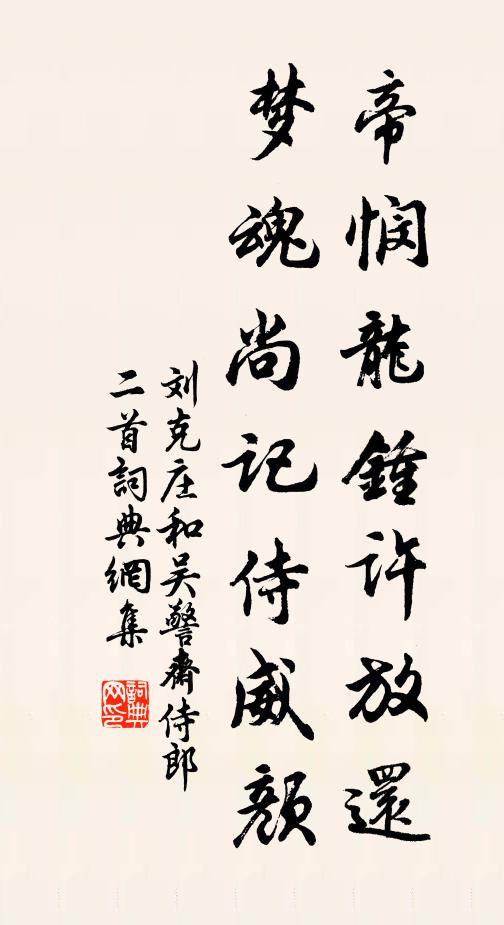 帝悯龍鍾许放還
梦魂尚记侍威颜
刘克庄和吴警齋侍郎
二首詞典網集
詞典网印